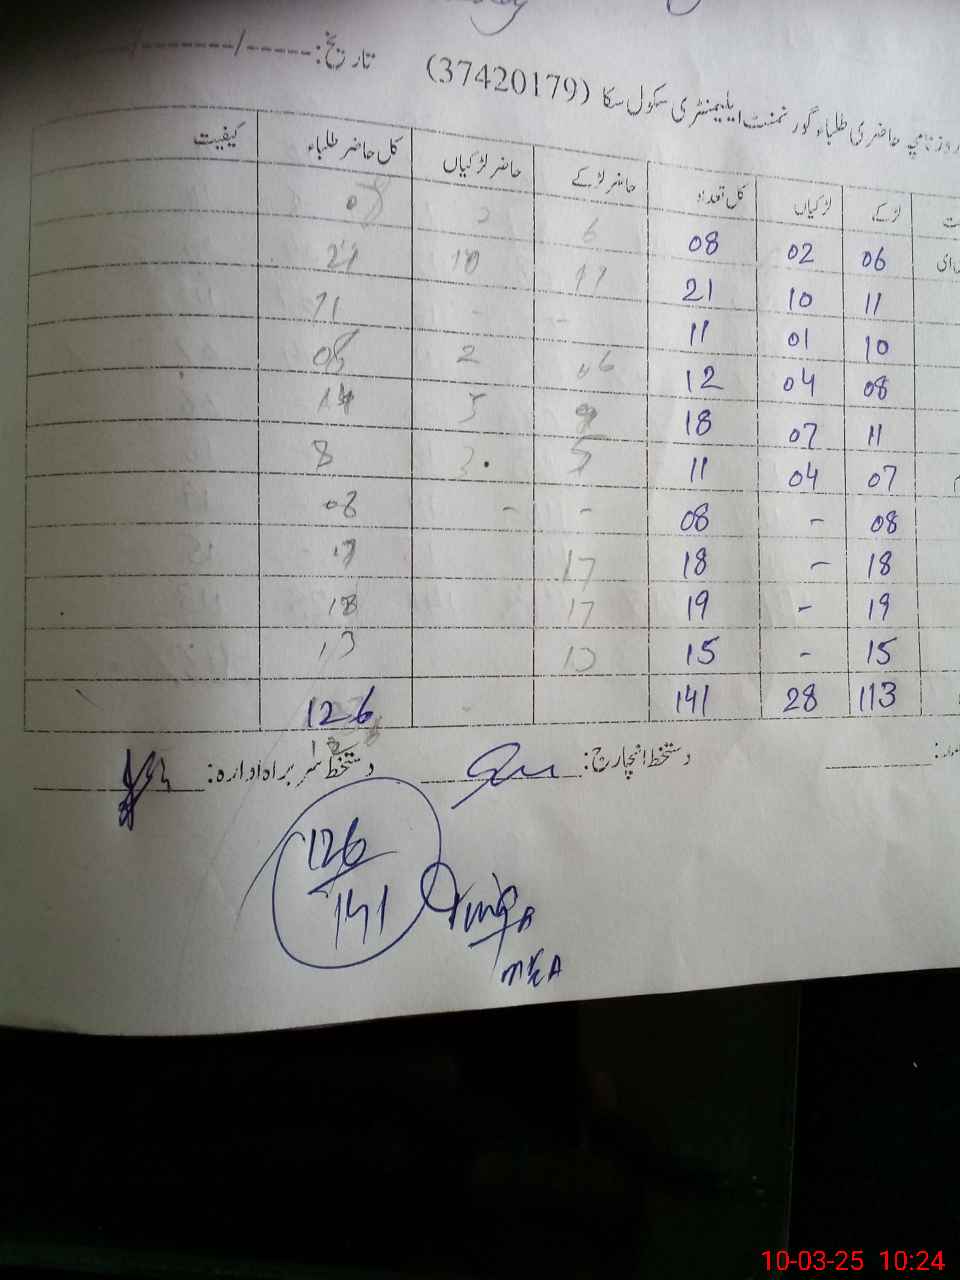 روزنامچہ حاضری طلباء گورنمنٹ ایلیمنٹری سکول سکا (37420179) تاریخ: -----/-------/
لڑکے لڑکیاں کل تعداد حاضر لڑکے حاضر لڑکیاں کل حاضر طلباء کیفیت
06 02 08 6 2 08
11 10 21 11 10 21
10 01 11 - - 11
08 04 12 06 2 08
11 07 18 9 5 14
07 04 11 5 3 8
08 - 08 - - 08
18 - 18 17 17
19 - 19 17 18
15 - 15 13 13
113 28 141 126
دستخط انچارج: دستخط سربراہ ادارہ:
126
141
MEA
10-03-25 10:24